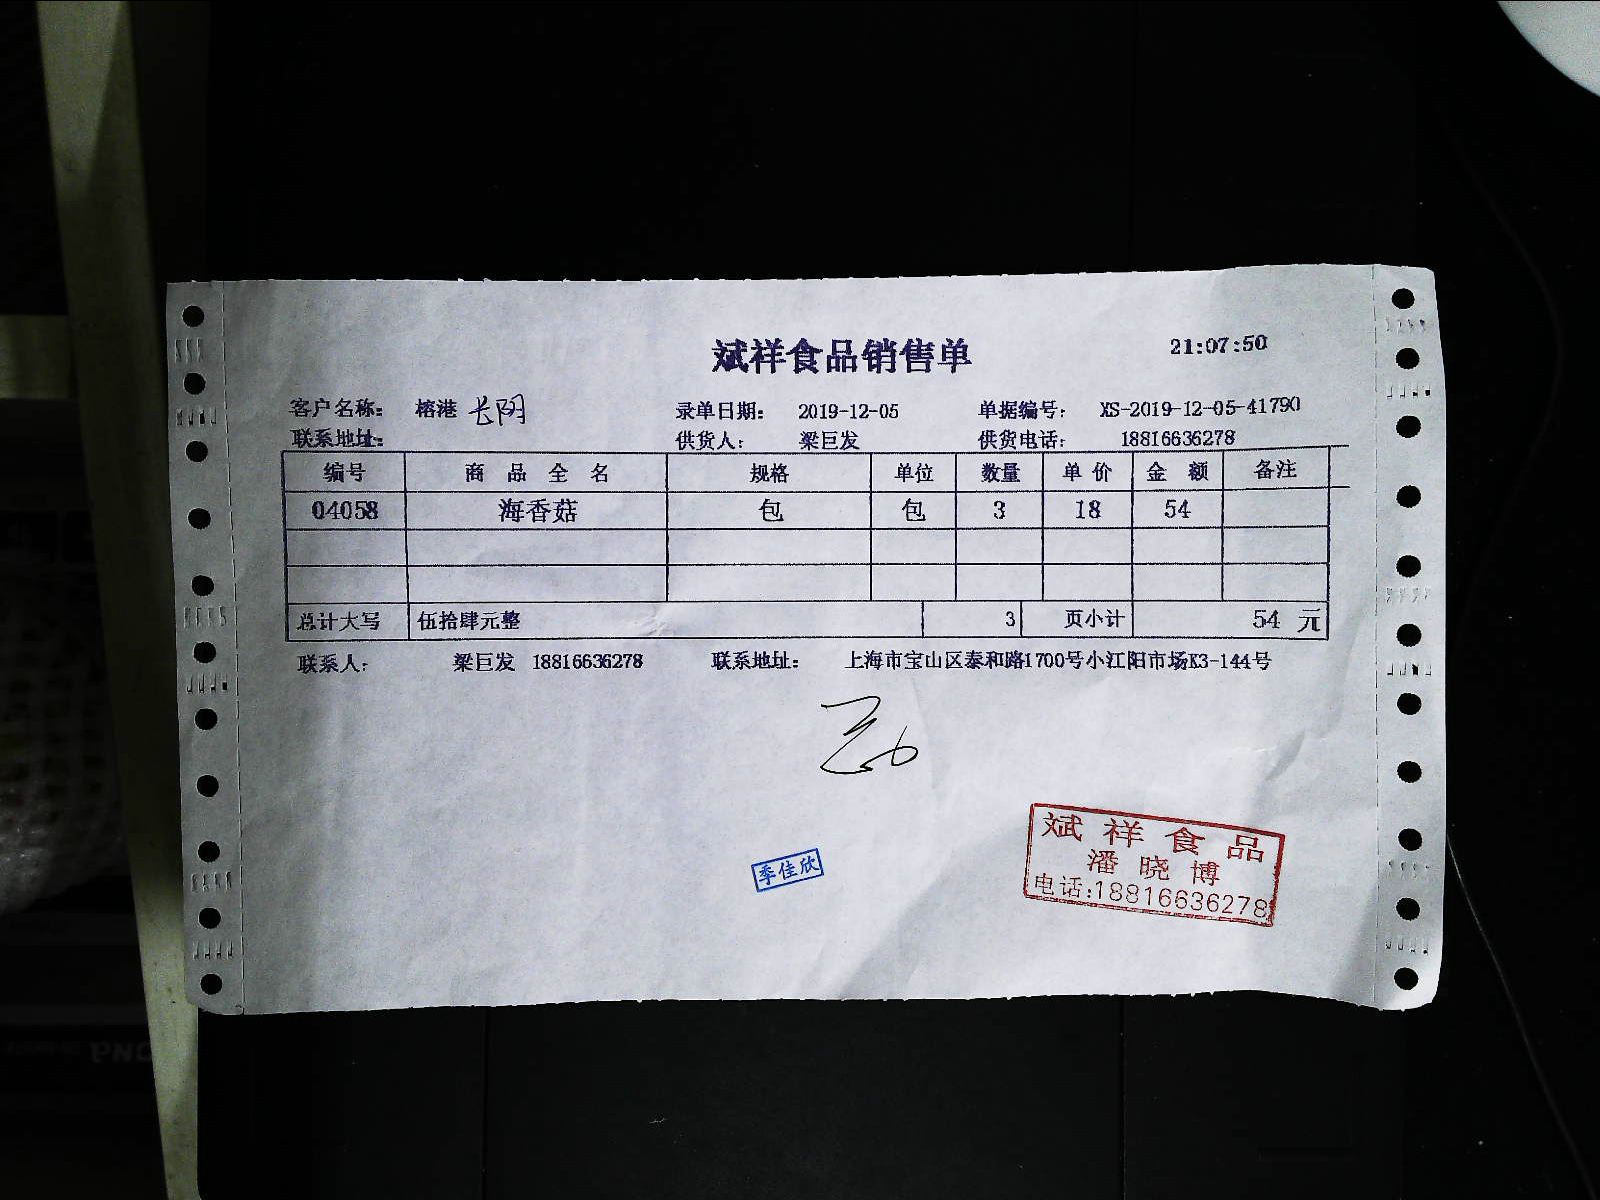 斌祥食品销售单 21:07:50
客户名称: 榕港 长阴 录单日期: 2019-12-05 单据编号: XS-2019-12-05-41790
联系地址: 供货人: 梁巨发 供货电话: 18816636278
编号 商品全名 规格 单位 数量 单价 金额 备注
04058 海香菇 包 包 3 18 54
总计大写 伍拾肆元整 3 页小计 54 元
联系人: 梁巨发 18816636278 联系地址: 上海市宝山区泰和路1700号小江阳市场K3-144号
季佳欣
斌祥食品
潘晓博
电话:18816636278